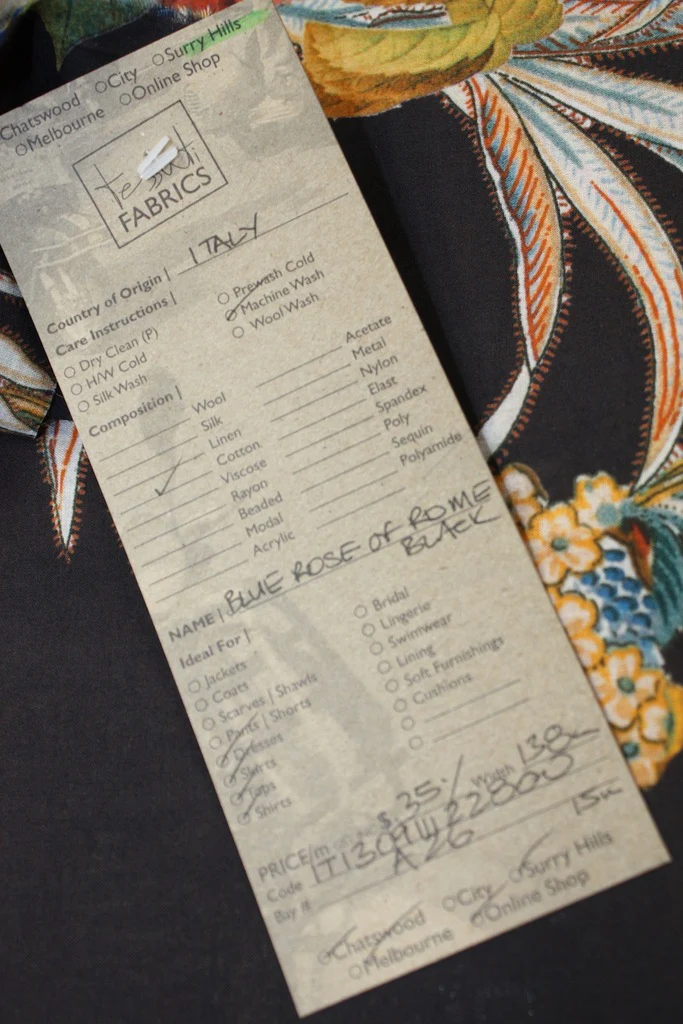 Chatswood City Surry Hills
Melbourne Online Shop
FABRICS
Country of Origin | ITALY
Care Instructions |
Dry Clean (P)
H/W Cold
Silk Wash
Prewash Cold
Machine Wash
Wool Wash
Composition |
Wool
Silk
Linen
Cotton
Viscose
Rayon
Beaded
Modal
Acrylic
Acetate
Metal
Nylon
Elast
Spandex
Poly
Sequin
Polyamide
NAME | BLUE ROSE OF ROME
BLACK
Ideal For |
Jackets
Coats
Scarves | Shawls
Pants | Shorts
Dresses
Skirts
Tops
Shirts
Bridal
Lingerie
Swimwear
Lining
Soft Furnishings
Cushions
PRICE/m $ 35./ Width 138
Code
Buy it A26 15m
Chatswood City Surry Hills
Melbourne Online Shop